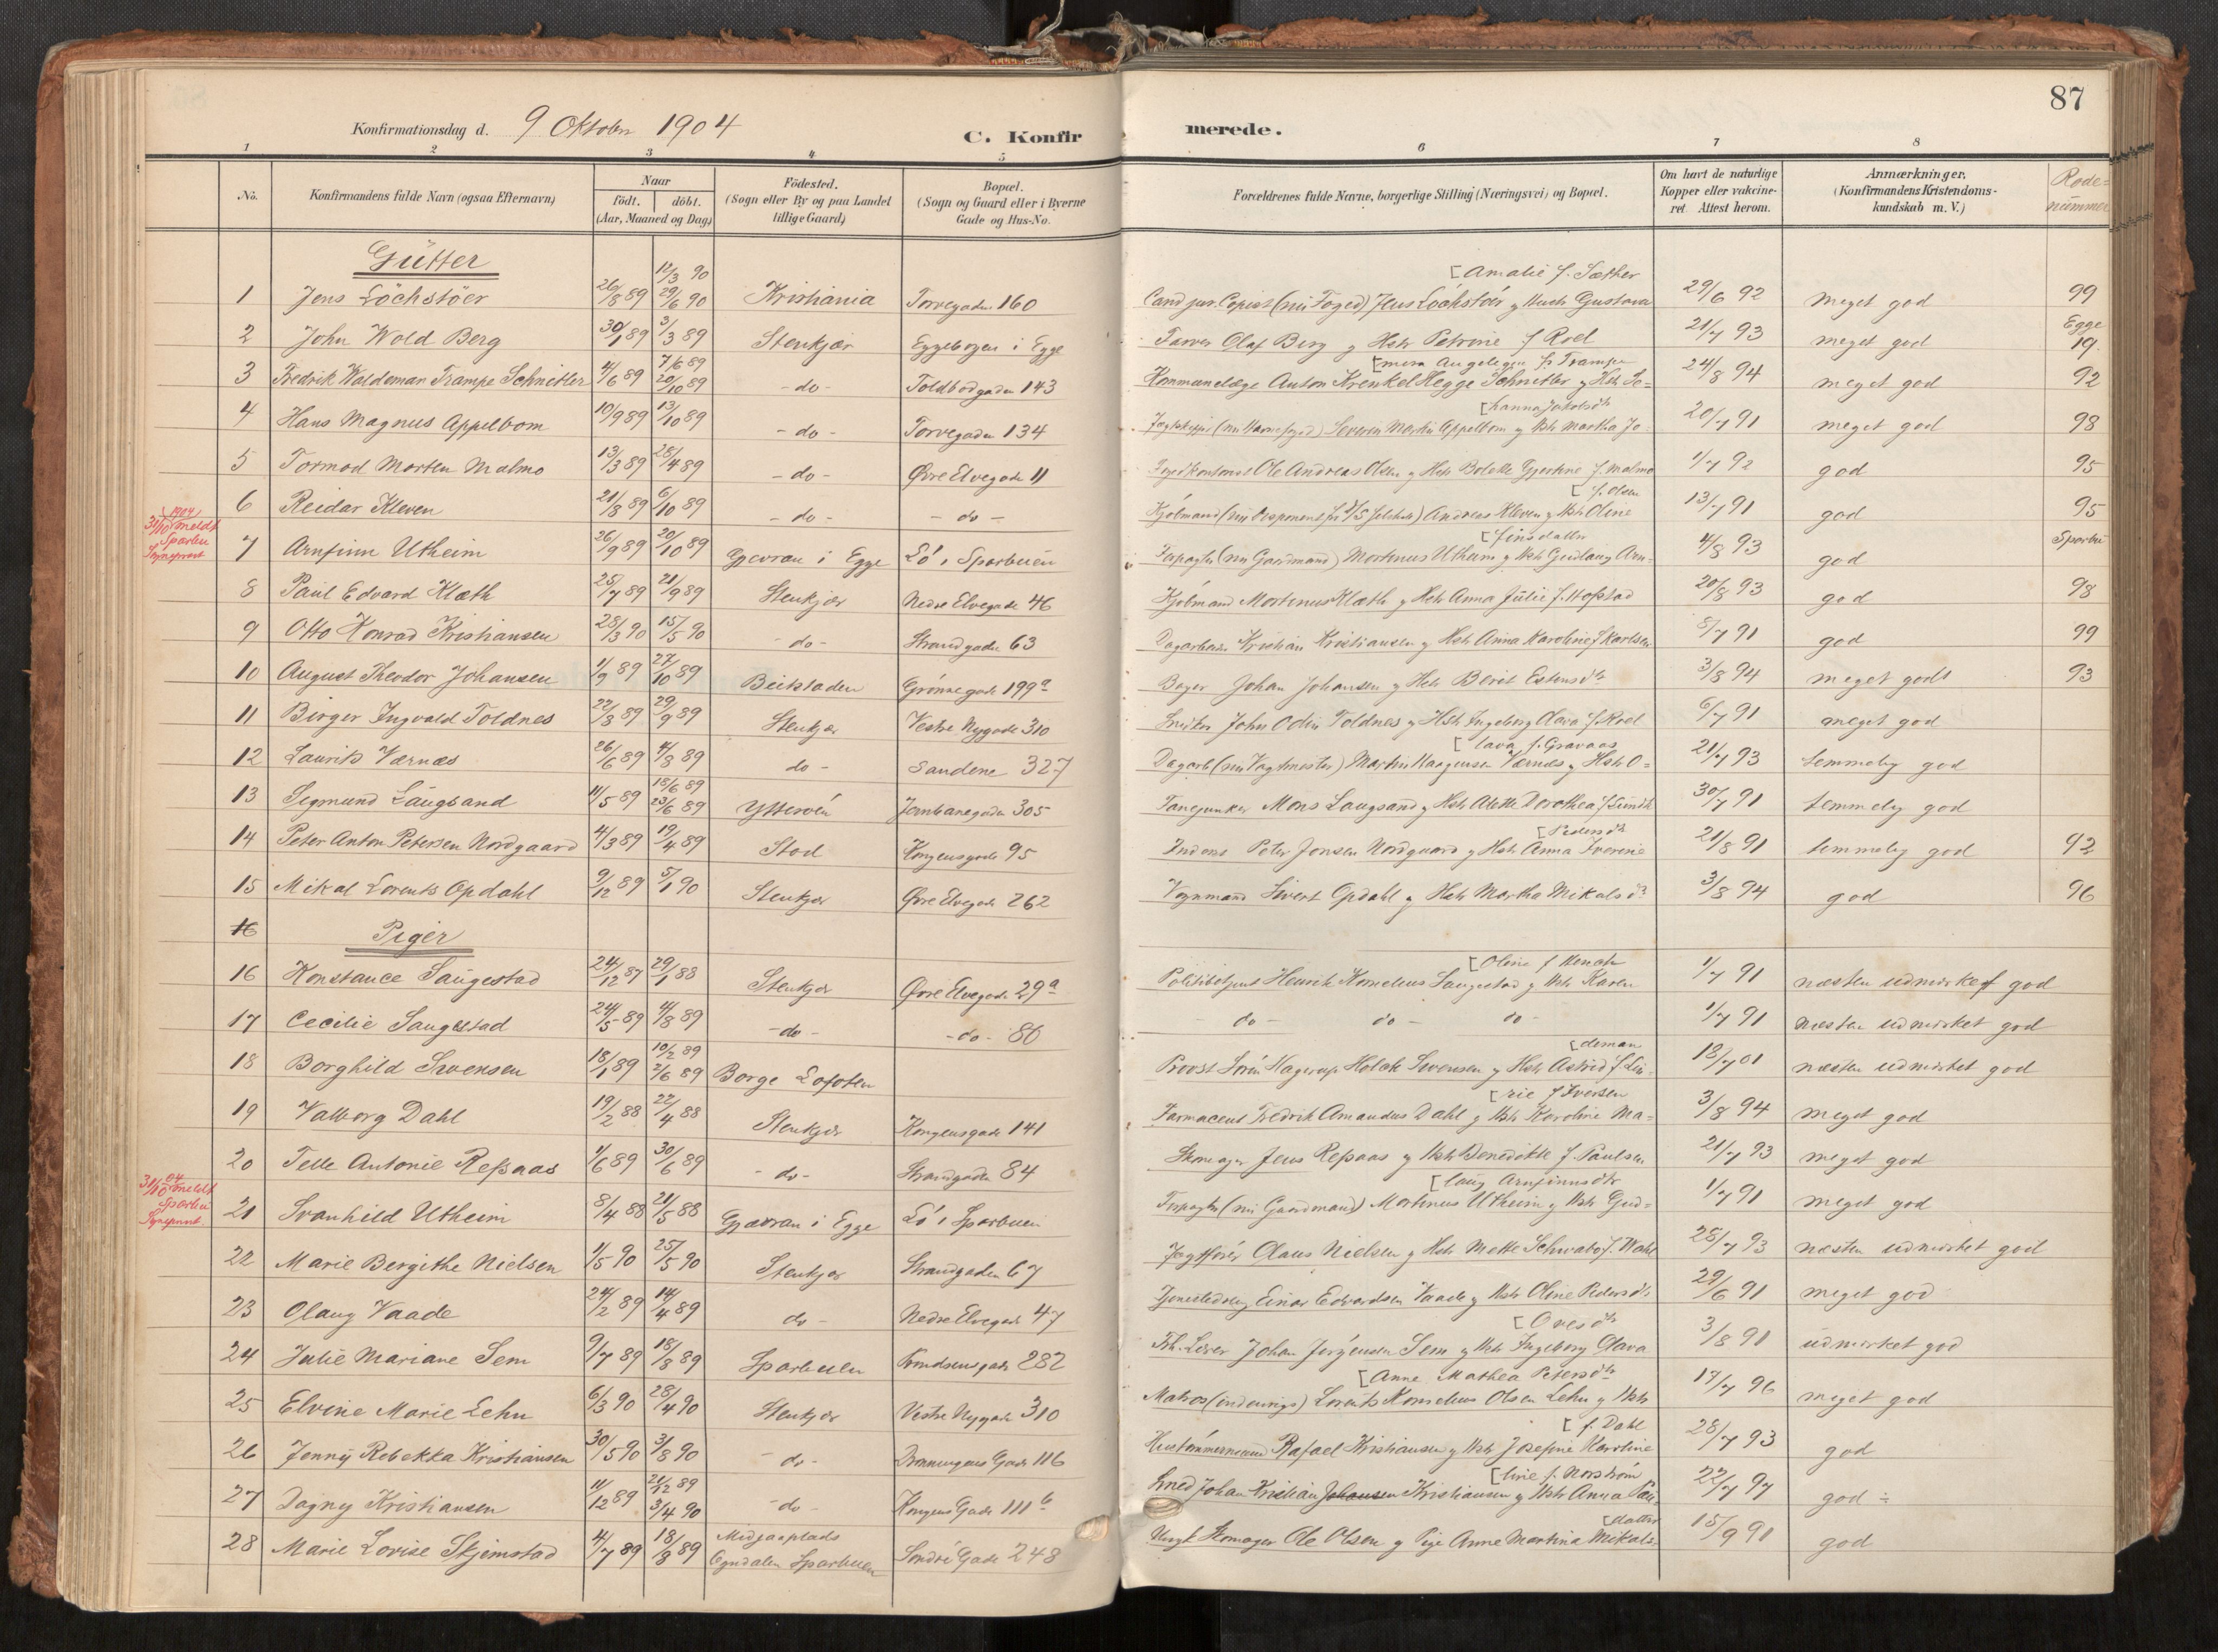 87
Konfirmationsdag d. 9 Oktober 1904
C. Konfirmerede.
1 2 3 4 5 6 7 8
No. Konfirmandens fulde Navn (ogsaa Efternavn) Naar födt. döbt. (Aar, Maaned og Dag) Födested. (Sogn eller By og paa Landet tillige Gaard) Bopæl. (Sogn og Gaard eller i Byerne Gade og Hus-No. Forældrenes fulde Navne, borgerlige Stilling (Næringsvei) og Bopæl. Om havt de naturlige Kopper eller vakcineret. Attest herom. Anmærkninger, (Konfirmandens Kristendomskundskab m. V.) Rodenummer
Gütter
1 Jens Löchstöer 26/8 89 12/3 90 29/6 90 Kristiania Torvegaden 160 Cand jur. Copist (nu Foged) Jens Löchstöer g Hust Gustava [Amalie f. Sæther 29/6 92 meget god 99
2 John Wold Berg 30/1 89 3/3 89 Stenkjær Eggebogen i Egge Farver Olaf Berg g Hstr Petrine f Roel 21/7 93 meget god Egge 19.
3 Fredrik Waldemar Trampe Schnitler 4/6 89 7/6 89 20/10 89 - do - Toldbodgaden 143 Kommunelæge Anton Krenkel Hegge Schnitler g Hstr [f. Trampe 24/8 94 meget god 92
4 Hans Magnus Appelbom 10/9 89 13/10 89 - do - Torvegaden 134 Severin Martin Appelbom g Hstr Martha Jo- [hanna Jakobsdtr 20/7 91 meget god 98
5 Tormod Morten Malmo 13/3 89 28/4 89 - do - Øvre Elvegade 11 Ole Andreas Olsen g Hstr Bolette Gjertine f. Malmo 1/7 92 god 95
1904 31/10 meldt Sparbu Sogneprest
6 Reidar Kleven 21/8 89 6/10 89 - do - - do - Kjøbmand Andreas Kleven g Hstr Oline [f. Olsen 13/7 91 god 95
7 Arnfinn Utheim 26/9 89 20/10 89 Gjevran i Egge Lö i Sparbuen Forpagter (nu Gaardmand) Martinus Utheim g Hstr Gudlaug Arn- [finsdatter 4/8 93 god Sparbu
8 Paul Edvard Klæth 25/7 89 21/9 89 Stenkjær Nedre Elvegade 46 Kjøbmand Martinus Klæth g Hstr Anna Julie f. Hofstad 20/8 93 god 98
9 Otto Konrad Kristiansen 28/3 90 15/5 90 - do - Strandgaden 63 Dagarbeider Kristian Kristiansen g Hstr Anna Karoline f Karlsen 8/7 91 god 99
10 August Theodor Johansen 1/9 89 27/10 89 Beitstaden Grönnegade 199a Bager Johan Johansen g Hstr Berit Estensdtr 3/8 94 meget godt 93
11 Birger Ingvald Toldnes 22/8 89 29/9 89 Stenkjær Vestre Nygade 310 Snikker John Odin Toldnes g Hstr Ingeborg Olava f. Roel 6/7 91 meget god
12 Laurits Værnæs 26/6 89 4/8 89 do - Sandene 327 Dagarb (nu Vagtmester) Martin Haagensen Værnæs g Hstr O- [lava f. Gravaas 21/7 93 temmelig god
13 Sigmund Laugsand 11/5 89 15/6 89 23/6 89 Ytterøen Jernbanegaden 305 Mons Laugsand g Hstr Alette Dorothea f Lunde 30/7 91 temmelig god
14 Peter Anton Petersen Nordgaard 4/3 89 19/4 89 Stod Kongensgade 95 Inderst Peter Jonsen Nordgaard g Hstr Anna Iverine [Pedersdtr 21/8 91 temmelig god 92
15 Mikal Lorents Opdahl 9/12 89 5/1 90 Stenkjær Øvre Elvegade 262 Vognmand Sivert Opdahl g Hstr Martha Mikalsdtr 3/8 94 god 96
16 Piger
16 Konstance Saugestad 24/12 87 29/1 88 Stenkjær Øvre Elvegade 29a Politibetjent Henrik Kornelius Saugestad g Hstr Karen [Oline f Munch 1/7 91 næsten udmerket god
17 Cecilie Saugestad 24/5 89 4/8 89 - do - - do - 80 - do - do - do - 1/7 91 næsten udmerket god
18 Borghild Svensen 18/1 89 10/2 89 2/6 89 Borge Lofoten Provst Sörin Hagerup Holck Svensen g Hstr Astrid f Lin- [deman 18/7 01 næsten udmerket god
19 Valborg Dahl 19/2 88 22/4 88 Stenkjær Kongensgade 141 Farmaceut Fredrik Amandus Dahl g Hstr Karoline Ma- [rie f Iversen 3/8 94 meget god
20 Telle Antonie Repaas 1/6 89 30/6 89 - do - Strandgaden 84 Skomager Jens Repaas g Hstr Benedikte f. Paulsen 21/7 93 meget god
31/10 04 meldt Sparbu Sogneprest
21 Svanhild Utheim 8/4 88 21/5 88 Gjævran i Egge Lö i Sparbuen Forpagter (nu Gaardmand) Martinus Utheim g Hstr Gud- [laug Arnfinnsdtr 1/7 91 meget god
22 Marie Bergithe Nielsen 1/5 90 25/5 90 Stenkjær Strandgaden 67 Jægtfører Olaus Nielsen g Hstr Mette Schwabo f. Wahl 28/7 93 næsten udmerket god
23 Olaug Vaade 24/2 89 14/4 89 do - Nedre Elvegade 47 Einar Edvardsen Vaade g Hstr Oline Pedersdtr 29/6 91 meget god
24 Julie Mariane Sem 9/7 89 18/8 89 Sparbuen Knudsensgade 282 Fh. Lærer Johan Jørgensen Sem g Hstr Ingeborg Olava [Ovesdtr 3/8 91 udmerket god
25 Elvine Marie Lehn 6/3 90 28/4 90 Stenkjær Vestre Nygade 310 Matros Lorents Kornelius Olsen Lehn g Hstr [Anne Mathea Petersdtr 17/7 96 meget god
26 Jenny Rebekka Kristiansen 30/5 90 3/8 90 - do - Dronningens Gade 116 Hustømmermand Rafael Kristiansen g Hstr Josefine Karoline [f. Dahl 28/7 93 god
27 Dagny Kristiansen 11/12 89 21/12 89 3/4 90 - do - Kongens Gade 111b Smed Johan Kristian Johansen Kristiansen g Hstr Anna Pau- [line f. Norström 22/7 97 god ÷
28 Marie Lovise Skjemstad 4/7 89 18/8 89 Midjaaplads Ogndalen Sparbuen Søndre Gade 248 Ungk Skomager Ole Olsen g Pige Anne Martina Mikals- [datter 15/9 91 god